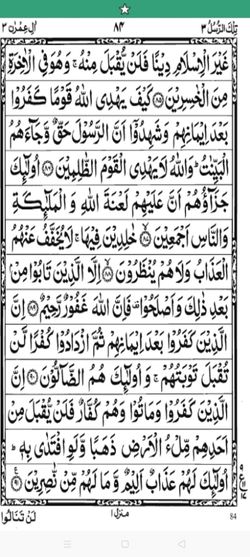 تِلْكَ الرُّسُلُ ٣ ٨٤ اٰلِ عِمْرٰن ٣
غَيْرَ الْاِسْلَامِ دِيْنًا فَلَنْ يُّقْبَلَ مِنْهُ ۚ وَهُوَ فِى الْاٰخِرَةِ
مِنَ الْخٰسِرِيْنَ ﴿٨٥﴾ كَيْفَ يَهْدِى اللّٰهُ قَوْمًا كَفَرُوْا
بَعْدَ اِيْمَانِهِمْ وَشَهِدُوْۤا اَنَّ الرَّسُوْلَ حَقٌّ وَّجَآءَهُمُ
الْبَيِّنٰتُ ؕ وَاللّٰهُ لَا يَهْدِى الْقَوْمَ الظّٰلِمِيْنَ ﴿٨٦﴾ اُولٰٓئِكَ
جَزَآؤُهُمْ اَنَّ عَلَيْهِمْ لَعْنَةَ اللّٰهِ وَ الْمَلٰٓئِكَةِ
وَالنَّاسِ اَجْمَعِيْنَ ﴿٨٧﴾ خٰلِدِيْنَ فِيْهَا ۚ لَا يُخَفَّفُ عَنْهُمُ
الْعَذَابُ وَلَا هُمْ يُنْظَرُوْنَ ﴿٨٨﴾ اِلَّا الَّذِيْنَ تَابُوْا مِنْۢ
بَعْدِ ذٰلِكَ وَ اَصْلَحُوْا ۫ فَاِنَّ اللّٰهَ غَفُوْرٌ رَّحِيْمٌ ﴿٨٩﴾ اِنَّ
الَّذِيْنَ كَفَرُوْا بَعْدَ اِيْمَانِهِمْ ثُمَّ ازْدَادُوْا كُفْرًا لَّنْ
تُقْبَلَ تَوْبَتُهُمْ ۚ وَ اُولٰٓئِكَ هُمُ الضَّآلُّوْنَ ﴿٩٠﴾ اِنَّ
الَّذِيْنَ كَفَرُوْا وَمَاتُوْا وَهُمْ كُفَّارٌ فَلَنْ يُّقْبَلَ مِنْ
اَحَدِهِمْ مِّلْءُ الْاَرْضِ ذَهَبًا وَّلَوِ افْتَدٰى بِهٖ ؕ
اُولٰٓئِكَ لَهُمْ عَذَابٌ اَلِيْمٌ وَّ مَا لَهُمْ مِّنْ نّٰصِرِيْنَ ﴿٩١﴾
لَنْ تَنَالُوا منزل ١ 84